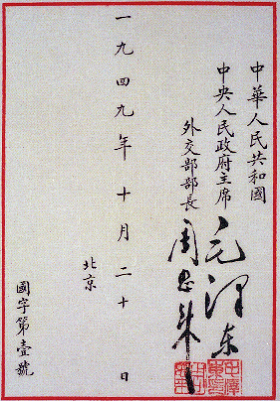 中華人民共和國
中央人民政府主席 毛泽东
外交部部長 周恩来
一九四九年十月二十日
北京
國字第壹號